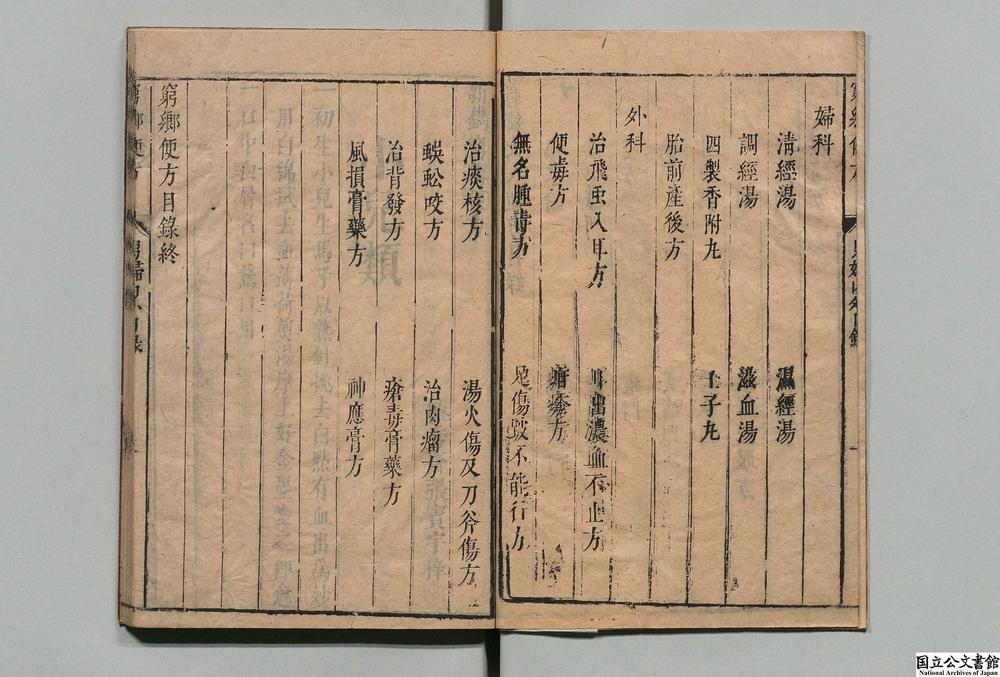 婦科
清經湯 濕經湯
調經湯 滋血湯
四製香附丸 壬子丸
胎前産後方
外科
治飛虫入耳方 耳出濃血不止方
便毒方 瘡方
無名腫毒方 足傷毀不能行方
治痰核方 湯火傷及刀斧傷方
蜈蚣咬方 治肉瘤方
治背發方 瘡毒膏藥方
風損膏藥方 神應膏方
窮鄉便方目錄終
窮鄉便方
国立公文書館
National Archives of Japan